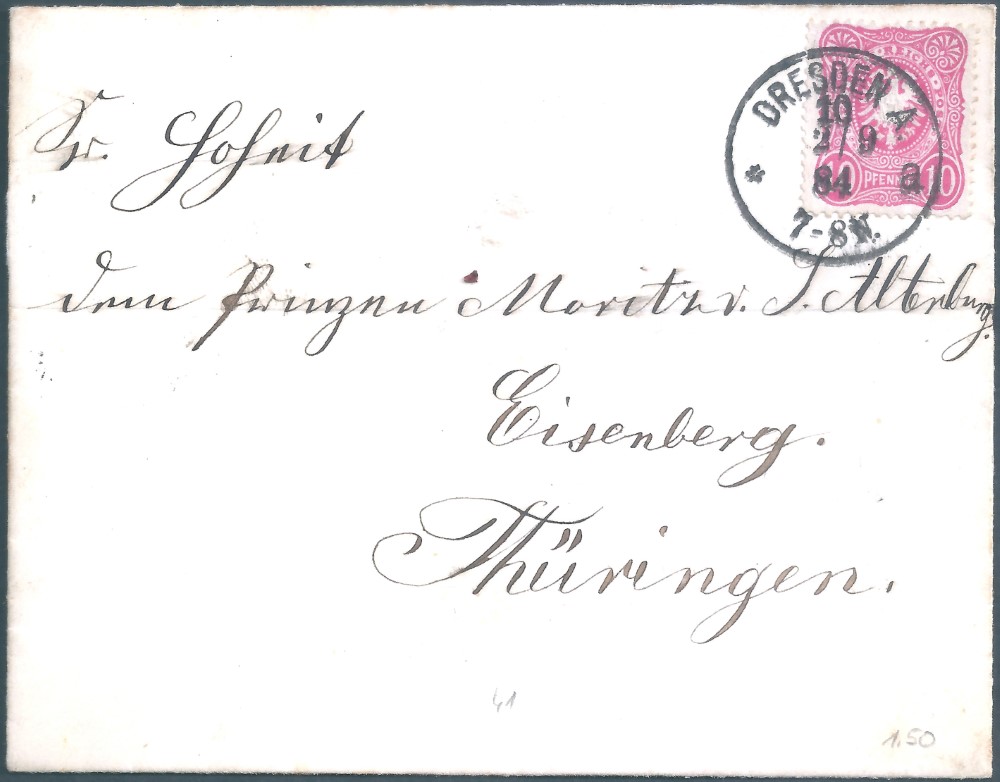 Sr. Hoheit
dem Prinzen Moritz v. S. Altenburg.
Eisenberg.
Thüringen.
DRESDEN A.
10
2/9
84 a
7-8 N.
REICHS
10 PFENNIG 10
41
1.50